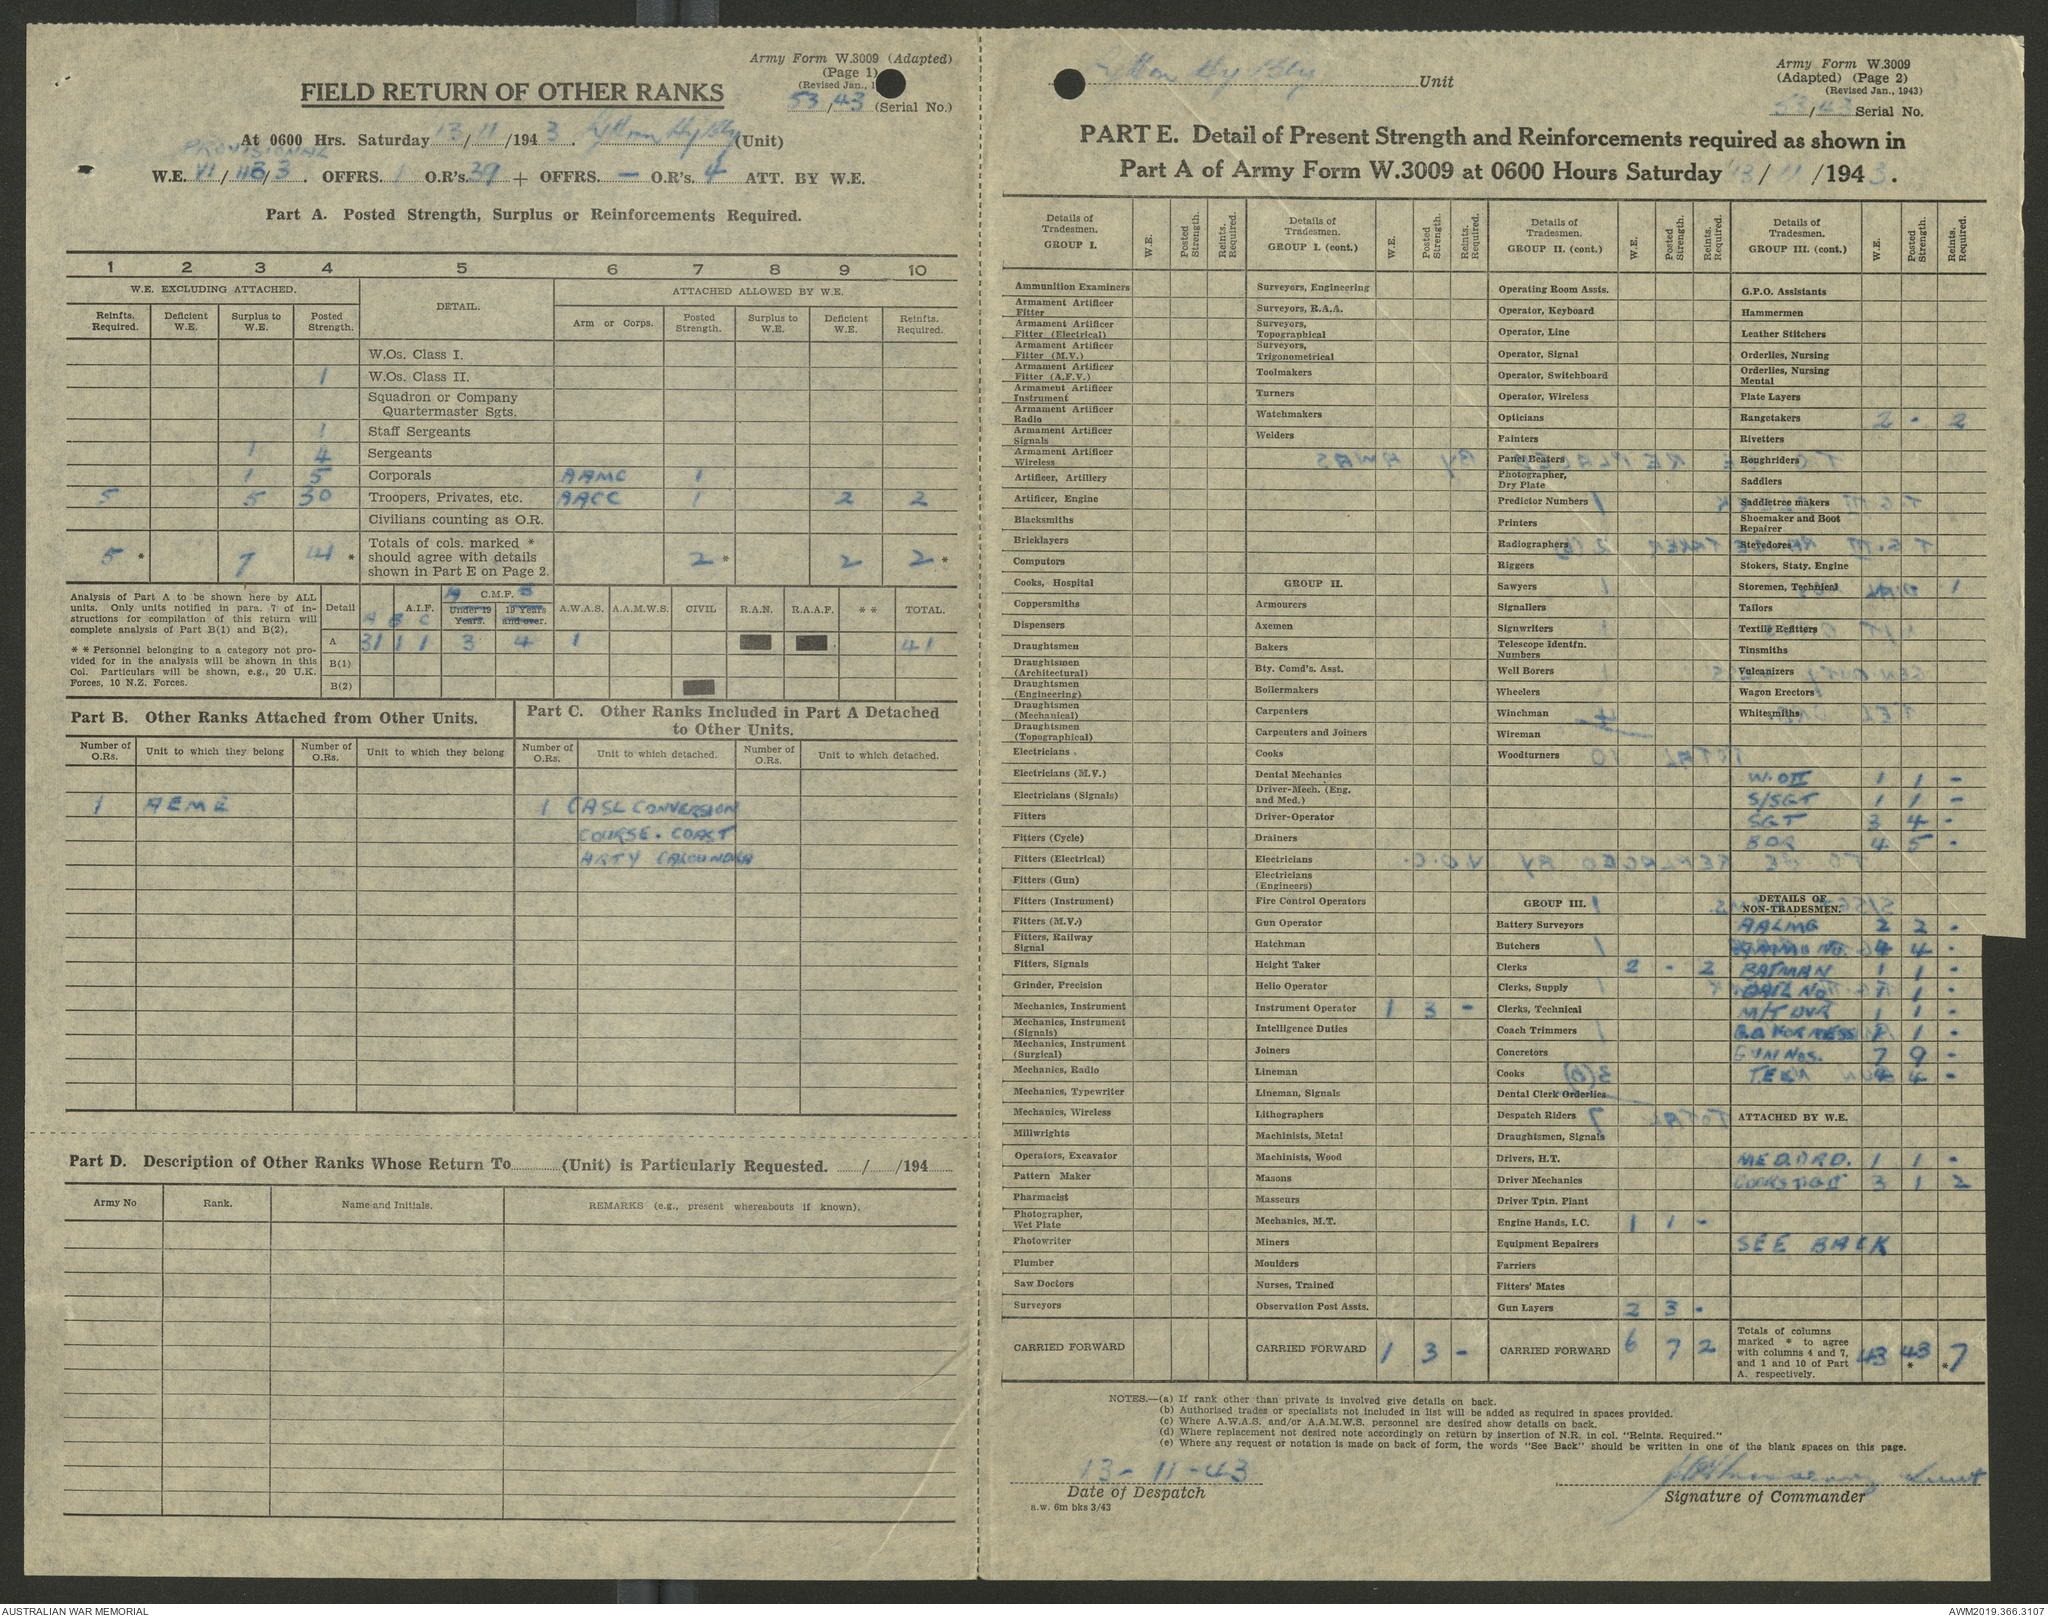 Army Form W.3009 (Adapted)
(Page 1)
(Revised Jan., 1
53/43 (Serial No.)
FIELD RETURN OF OTHER RANKS
At 0600 Hrs. Saturday 13/11/1943. Lytton Hy Bty (Unit)
PROVISIONAL
W.E. VI/11B/3. OFFRS. 1 O.R's. 39 + OFFRS. — O.R's. 4 ATT. BY W.E.
Part A. Posted Strength, Surplus or Reinforcements Required.
1 2 3 4 5 6 7 8 9 10
W.E. EXCLUDING ATTACHED. DETAIL. ATTACHED ALLOWED BY W.E.
Reinfts. Required. Deficient W.E. Surplus to W.E. Posted Strength. Arm or Corps. Posted Strength. Surplus to W.E. Deficient W.E. Reinfts. Required.
W.Os. Class I.
1 W.Os. Class II.
Squadron or Company Quartermaster Sgts.
1 Staff Sergeants
1 4 Sergeants
1 5 Corporals AAMC 1
5 5 30 Troopers, Privates, etc. AACC 1 2 2
Civilians counting as O.R.
5 * 7 41 * Totals of cols. marked * should agree with details shown in Part E on Page 2. 2 * 2 2 *
Analysis of Part A to be shown here by ALL units. Only units notified in para. 7 of instructions for compilation of this return will complete analysis of Part B(1) and B(2).
* * Personnel belonging to a category not provided for in the analysis will be shown in this Col. Particulars will be shown, e.g., 20 U.K. Forces, 10 N.Z. Forces.
Detail A.I.F. A B C C.M.F. A B Under 19 Years. 19 Years and over. A.W.A.S. A.A.M.W.S. CIVIL R.A.N. R.A.A.F. * * TOTAL.
A 31 1 1 3 4 1 41
B(1)
B(2)
Part B. Other Ranks Attached from Other Units.
Part C. Other Ranks Included in Part A Detached to Other Units.
Number of O.Rs. Unit to which they belong Number of O.Rs. Unit to which they belong Number of O.Rs. Unit to which detached. Number of O.Rs. Unit to which detached.
1 AEME 1 CASL CONVERSION
COURSE. COAST
ARTY CALOUNDRA
Part D. Description of Other Ranks Whose Return To (Unit) is Particularly Requested. / /194
Army No Rank. Name and Initials. REMARKS (e.g., present whereabouts if known).
Lytton Hy Bty Unit
Army Form W.3009
(Adapted) (Page 2)
(Revised Jan., 1943)
53/43 Serial No.
PART E. Detail of Present Strength and Reinforcements required as shown in
Part A of Army Form W.3009 at 0600 Hours Saturday 13/11/1943.
Details of Tradesmen. GROUP I. W.E. Posted Strength. Reints. Required.
Ammunition Examiners
Armament Artificer Fitter
Armament Artificer Fitter (Electrical)
Armament Artificer Fitter (M.V.)
Armament Artificer Fitter (A.F.V.)
Armament Artificer Instrument
Armament Artificer Radio
Armament Artificer Signals
Armament Artificer Wireless
Artificer, Artillery
Artificer, Engine
Blacksmiths
Bricklayers
Computors
Cooks, Hospital
Coppersmiths
Dispensers
Draughtsmen
Draughtsmen (Architectural)
Draughtsmen (Engineering)
Draughtsmen (Mechanical)
Draughtsmen (Topographical)
Electricians
Electricians (M.V.)
Electricians (Signals)
Fitters
Fitters (Cycle)
Fitters (Electrical)
Fitters (Gun)
Fitters (Instrument)
Fitters (M.V.)
Fitters, Railway Signal
Fitters, Signals
Grinder, Precision
Mechanics, Instrument
Mechanics, Instrument (Signals)
Mechanics, Instrument (Surgical)
Mechanics, Radio
Mechanics, Typewriter
Mechanics, Wireless
Millwrights
Operators, Excavator
Pattern Maker
Pharmacist
Photographer, Wet Plate
Photowriter
Plumber
Saw Doctors
Surveyors
CARRIED FORWARD
Details of Tradesmen. GROUP I. (cont.) W.E. Posted Strength. Reints. Required.
Surveyors, Engineering
Surveyors, R.A.A.
Surveyors, Topographical
Surveyors, Trigonometrical
Toolmakers
Turners
Watchmakers
Welders
GROUP II.
Armourers
Axemen
Bakers
Bty. Comd's. Asst.
Boilermakers
Carpenters
Carpenters and Joiners
Cooks
Dental Mechanics
Driver-Mech. (Eng. and Med.)
Driver-Operator
Drainers
Electricians
Electricians (Engineers)
Fire Control Operators
Gun Operator
Hatchman
Height Taker
Helio Operator
Instrument Operator 1 3 -
Intelligence Duties
Joiners
Lineman
Lineman, Signals
Lithographers
Machinists, Metal
Machinists, Wood
Masons
Masseurs
Mechanics, M.T.
Miners
Moulders
Nurses, Trained
Observation Post Assts.
CARRIED FORWARD 1 3 -
Details of Tradesmen. GROUP II. (cont.) W.E. Posted Strength. Reints. Required.
Operating Room Assts.
Operator, Keyboard
Operator, Line
Operator, Signal
Operator, Switchboard
Operator, Wireless
Opticians
Painters
Panel Beaters
Photographer, Dry Plate
Predictor Numbers
Printers
Radiographers
Riggers
Sawyers
Signallers
Signwriters
Telescope Identfn. Numbers
Well Borers
Wheelers
Winchman
Wireman
Woodturners
GROUP III.
Battery Surveyors
Butchers
Clerks 2 - 2
Clerks, Supply
Clerks, Technical
Coach Trimmers
Concretors
Cooks
Dental Clerk Orderlies
Despatch Riders
Draughtsmen, Signals
Drivers, H.T.
Driver Mechanics
Driver Tptn. Plant
Engine Hands, I.C. 1 1 -
Equipment Repairers
Farriers
Fitters' Mates
Gun Layers 2 3 -
CARRIED FORWARD 6 7 2
Details of Tradesmen. GROUP III. (cont.) W.E. Posted Strength. Reints. Required.
G.P.O. Assistants
Hammermen
Leather Stitchers
Orderlies, Nursing
Orderlies, Nursing Mental
Plate Layers
Rangetakers 2 - 2
Rivetters
Roughriders
Saddlers
Saddletree makers
Shoemaker and Boot Repairer
Stevedores
Stokers, Staty. Engine
Storemen, Technical
Tailors
Textile Refitters
Tinsmiths
Vulcanizers
Wagon Erectors
Whitesmiths
W.OII 1 1 -
S/SGT 1 1 -
SGT 3 4 -
BDR 4 5 -
DETAILS OF NON-TRADESMEN.
AALMG 2 2 -
AMMO NO. 4 4 -
BATMAN 1 1 -
DIAL NO 1 1 -
M/T DVR 1 1 -
G.D. FOR MESS 1 1 -
GUN NOS. 7 9 -
TELN 4 4 -
ATTACHED BY W.E.
MED. ORD. 1 1 -
COOKS TG II 3 1 2
SEE BACK
Totals of columns marked * to agree with columns 4 and 7, and 1 and 10 of Part A. respectively. 43 43 * * 7
NOTES.—(a) If rank other than private is involved give details on back.
(b) Authorised trades or specialists not included in list will be added as required in spaces provided.
(c) Where A.W.A.S. and/or A.A.M.W.S. personnel are desired show details on back.
(d) Where replacement not desired note accordingly on return by insertion of N.R. in col. "Reints. Required."
(e) Where any request or notation is made on back of form, the words "See Back" should be written in one of the blank spaces on this page.
13-11-43
Date of Despatch
Lieut
Signature of Commander
a.w. 6m bks 3/43
AUSTRALIAN WAR MEMORIAL
AWM2019.366.3107